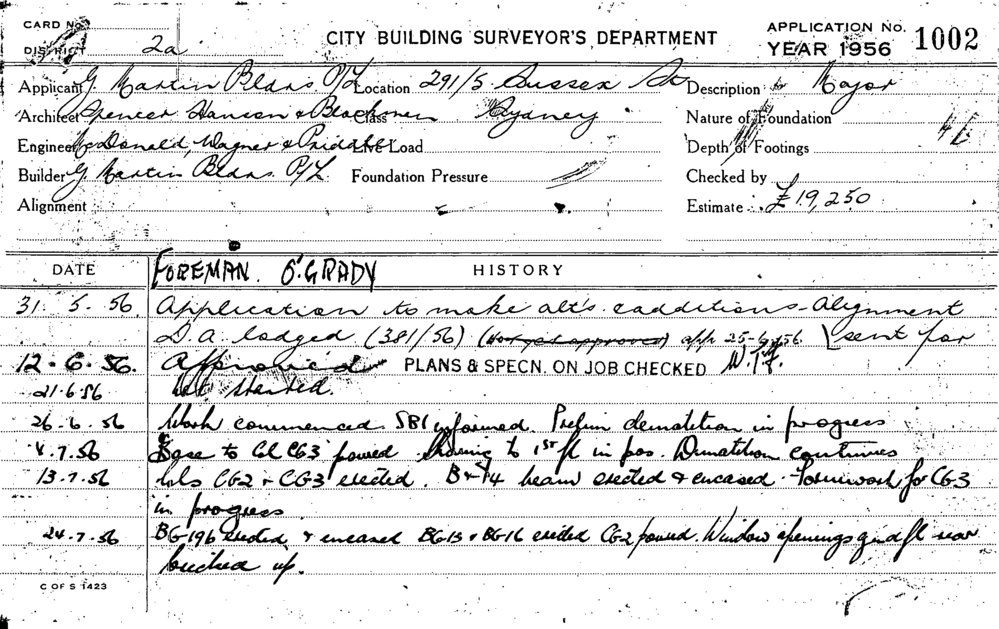 CARD No.
DISTRICT 2a
CITY BUILDING SURVEYOR'S DEPARTMENT
APPLICATION No. 1002
YEAR 1956
Applicant G. Martin Bldrs. P/L Location 291/5 Sussex St Description Major
Architect Spencer Hansen & Class Sydney Nature of Foundation
Engineer McDonald, Wagner & Priddle Live Load Depth of Footings
Builder G. Martin Bldrs. P/L Foundation Pressure Checked by
Alignment Estimate £19,250
DATE FOREMAN. O'GRADY HISTORY
31.5.56 Application to make alt's & additions - Alignment
D.A. lodged (381/56) (Not yet approved) app 25-6-56. sent for
12.6.56. Approved PLANS & SPECN. ON JOB CHECKED W.T.F.
21.6.56 Not started.
26.6.56 Work commenced. SBI informed. Prelim demolition in progress
4.7.56 Base to Col CG3 poured. Shoring to 1st fl in pos. Demolition continues
13.7.56 Cols CG2 & CG3 erected. beam erected & encased. Formwork for CG3
in progress
24.7.56 BG19b erected & encased BG15 & BG16 erected CG2 poured. Window openings gnd fl rear
bricked up.
C OF S 1423